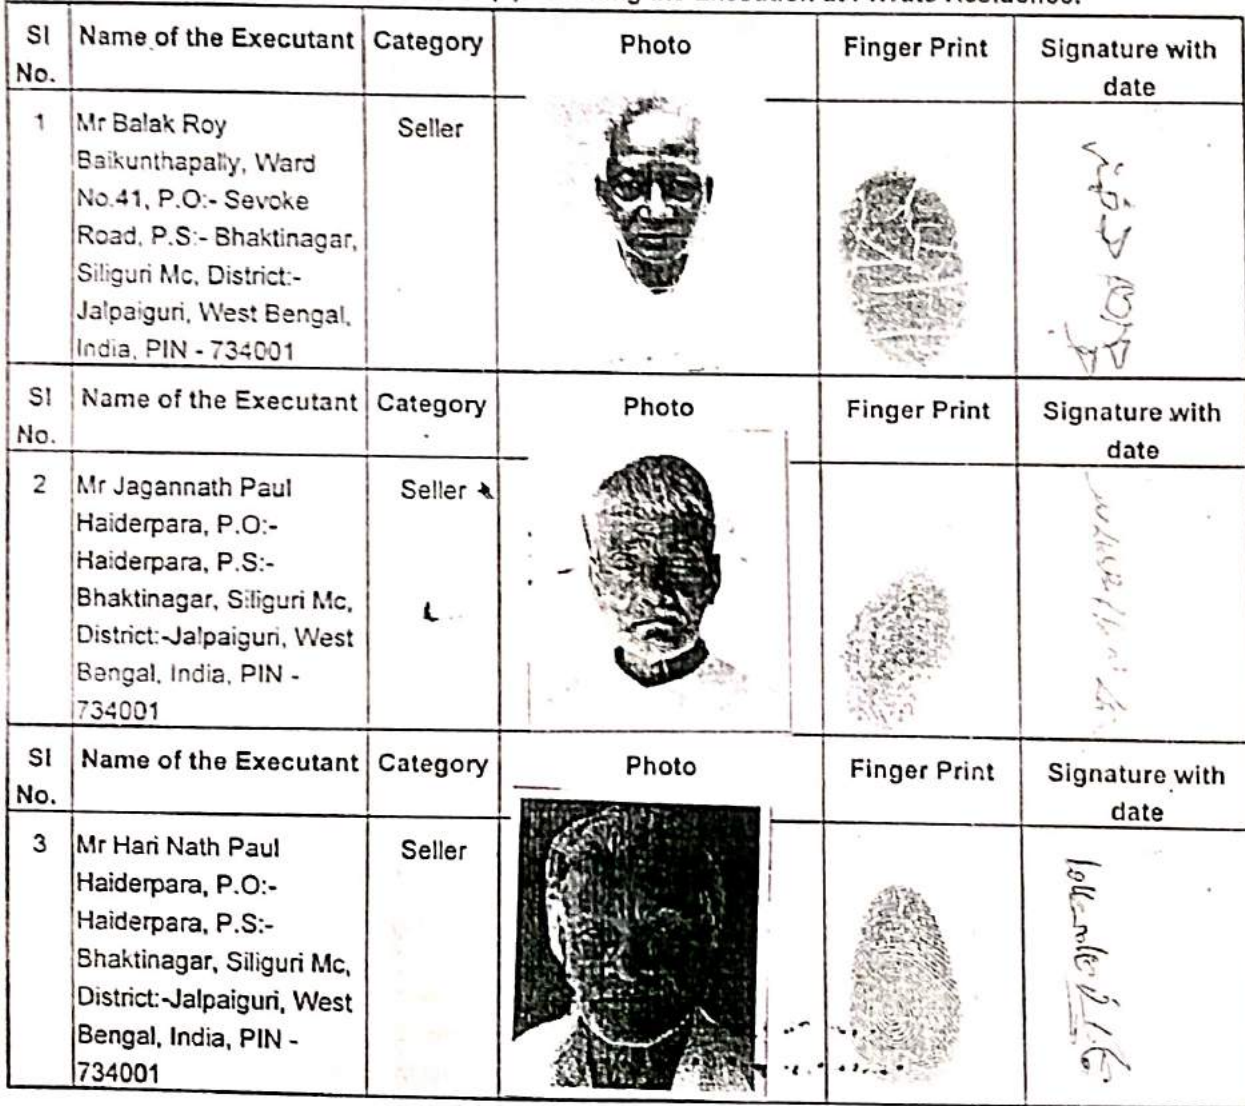 Execution at Private Residence.
Sl No. Name of the Executant Category Photo Finger Print Signature with date
1 Mr Balak Roy Seller
Baikunthapally, Ward
No.41, P.O:- Sevoke
Road, P.S:- Bhaktinagar,
Siliguri Mc, District:-
Jalpaiguri, West Bengal,
India, PIN - 734001
Sl No. Name of the Executant Category Photo Finger Print Signature with date
2 Mr Jagannath Paul Seller
Haiderpara, P.O:-
Haiderpara, P.S:-
Bhaktinagar, Siliguri Mc,
District:-Jalpaiguri, West
Bengal, India, PIN -
734001
Sl No. Name of the Executant Category Photo Finger Print Signature with date
3 Mr Hari Nath Paul Seller
Haiderpara, P.O:-
Haiderpara, P.S:-
Bhaktinagar, Siliguri Mc,
District:-Jalpaiguri, West
Bengal, India, PIN -
734001